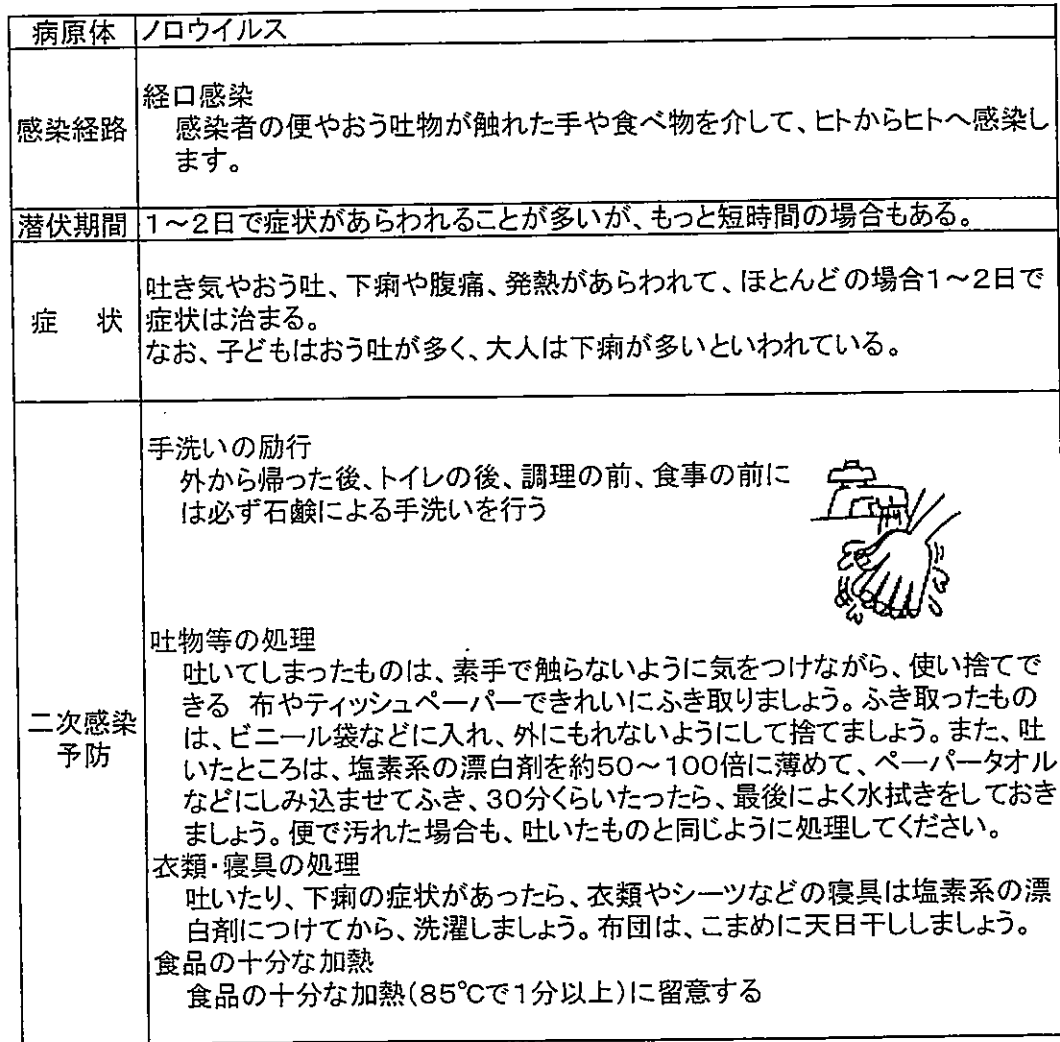 病原体 ノロウイルス
感染経路
経口感染
感染者の便やおう吐物が触れた手や食べ物を介して、ヒトからヒトへ感染し
ます。
潜伏期間 1～2日で症状があらわれることが多いが、もっと短時間の場合もある。
症　状
吐き気やおう吐、下痢や腹痛、発熱があらわれて、ほとんどの場合1～2日で
症状は治まる。
なお、子どもはおう吐が多く、大人は下痢が多いといわれている。
二次感染
予防
手洗いの励行
外から帰った後、トイレの後、調理の前、食事の前に
は必ず石鹸による手洗いを行う
吐物等の処理
吐いてしまったものは、素手で触らないように気をつけながら、使い捨てで
きる 布やティッシュペーパーできれいにふき取りましょう。ふき取ったもの
は、ビニール袋などに入れ、外にもれないようにして捨てましょう。また、吐
いたところは、塩素系の漂白剤を約50～100倍に薄めて、ペーパータオル
などにしみ込ませてふき、30分くらいたったら、最後によく水拭きをしておき
ましょう。便で汚れた場合も、吐いたものと同じように処理してください。
衣類・寝具の処理
吐いたり、下痢の症状があったら、衣類やシーツなどの寝具は塩素系の漂
白剤につけてから、洗濯しましょう。布団は、こまめに天日干ししましょう。
食品の十分な加熱
食品の十分な加熱(85℃で1分以上)に留意する